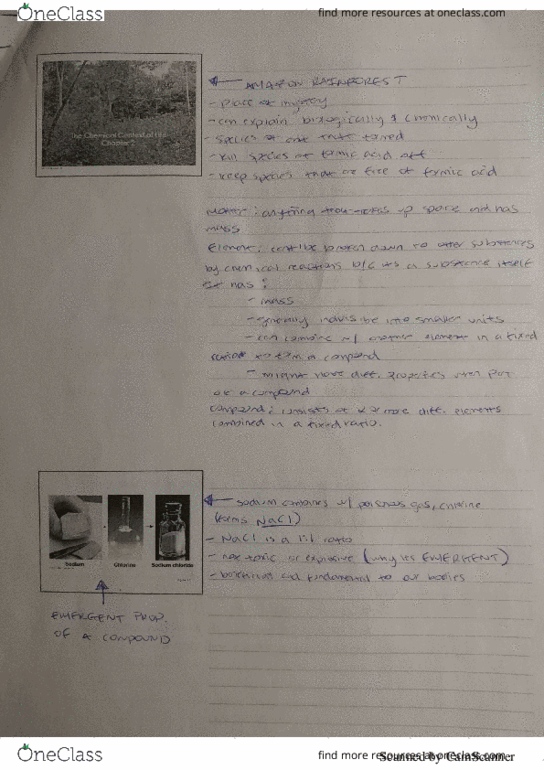 OneClass
find more resources at oneclass.com
AMAZON RAINFOREST
The Chemical Context of Life
Chapter 2
- place of mystery
- can explain biologically & chemically
- species of ant formed
- kill species of formic acid
- keep species that are free of formic acid
Matter: anything up space and has
mass
Element: broken down to other substances
by chemical reactions b/c its a substance itself
has:
- mass
- generally indivisible into smaller units
- can combine w/ another element in a fixed
ratio to form a compound
- might have diff. properties when put
a compound
compound: consists of 2 or more diff. elements
combined in a fixed ratio.
sodium combines w/ poisonous gas, chlorine
(forms NaCl)
- NaCl is a 1:1 ratio
- not toxic or explosive (why its EMERGENT)
- and fundamental to our bodies
Sodium
Chlorine
Sodium chloride
EMERGENT PROP.
OF A COMPOUND
OneClass
find more resources at oneclass.com
Scanned by CamScanner